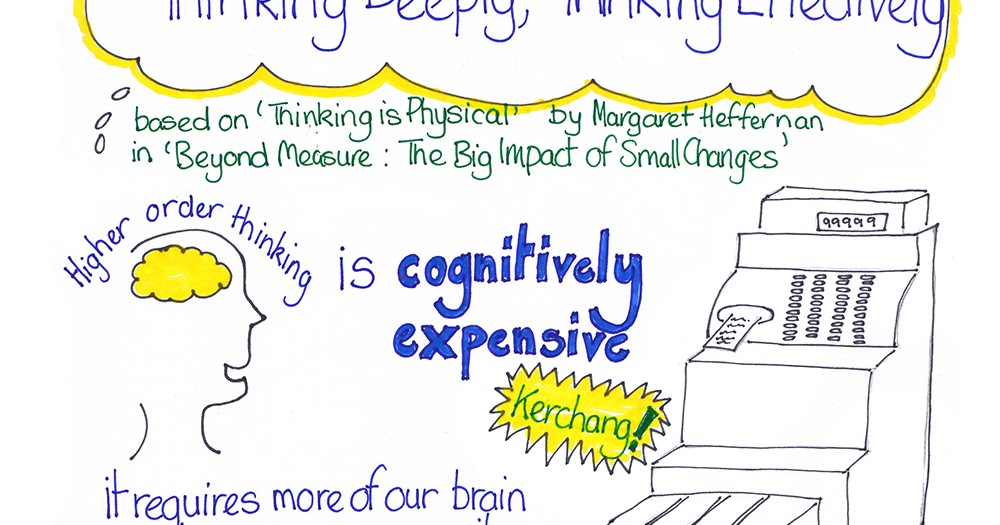 Thinking Deeply, Thinking Effectively
based on 'Thinking is Physical' by Margaret Heffernan
in 'Beyond Measure : The Big Impact of Small Changes'
Higher order thinking
is cognitively
expensive
99999
Kerchang!
it requires more of our brain